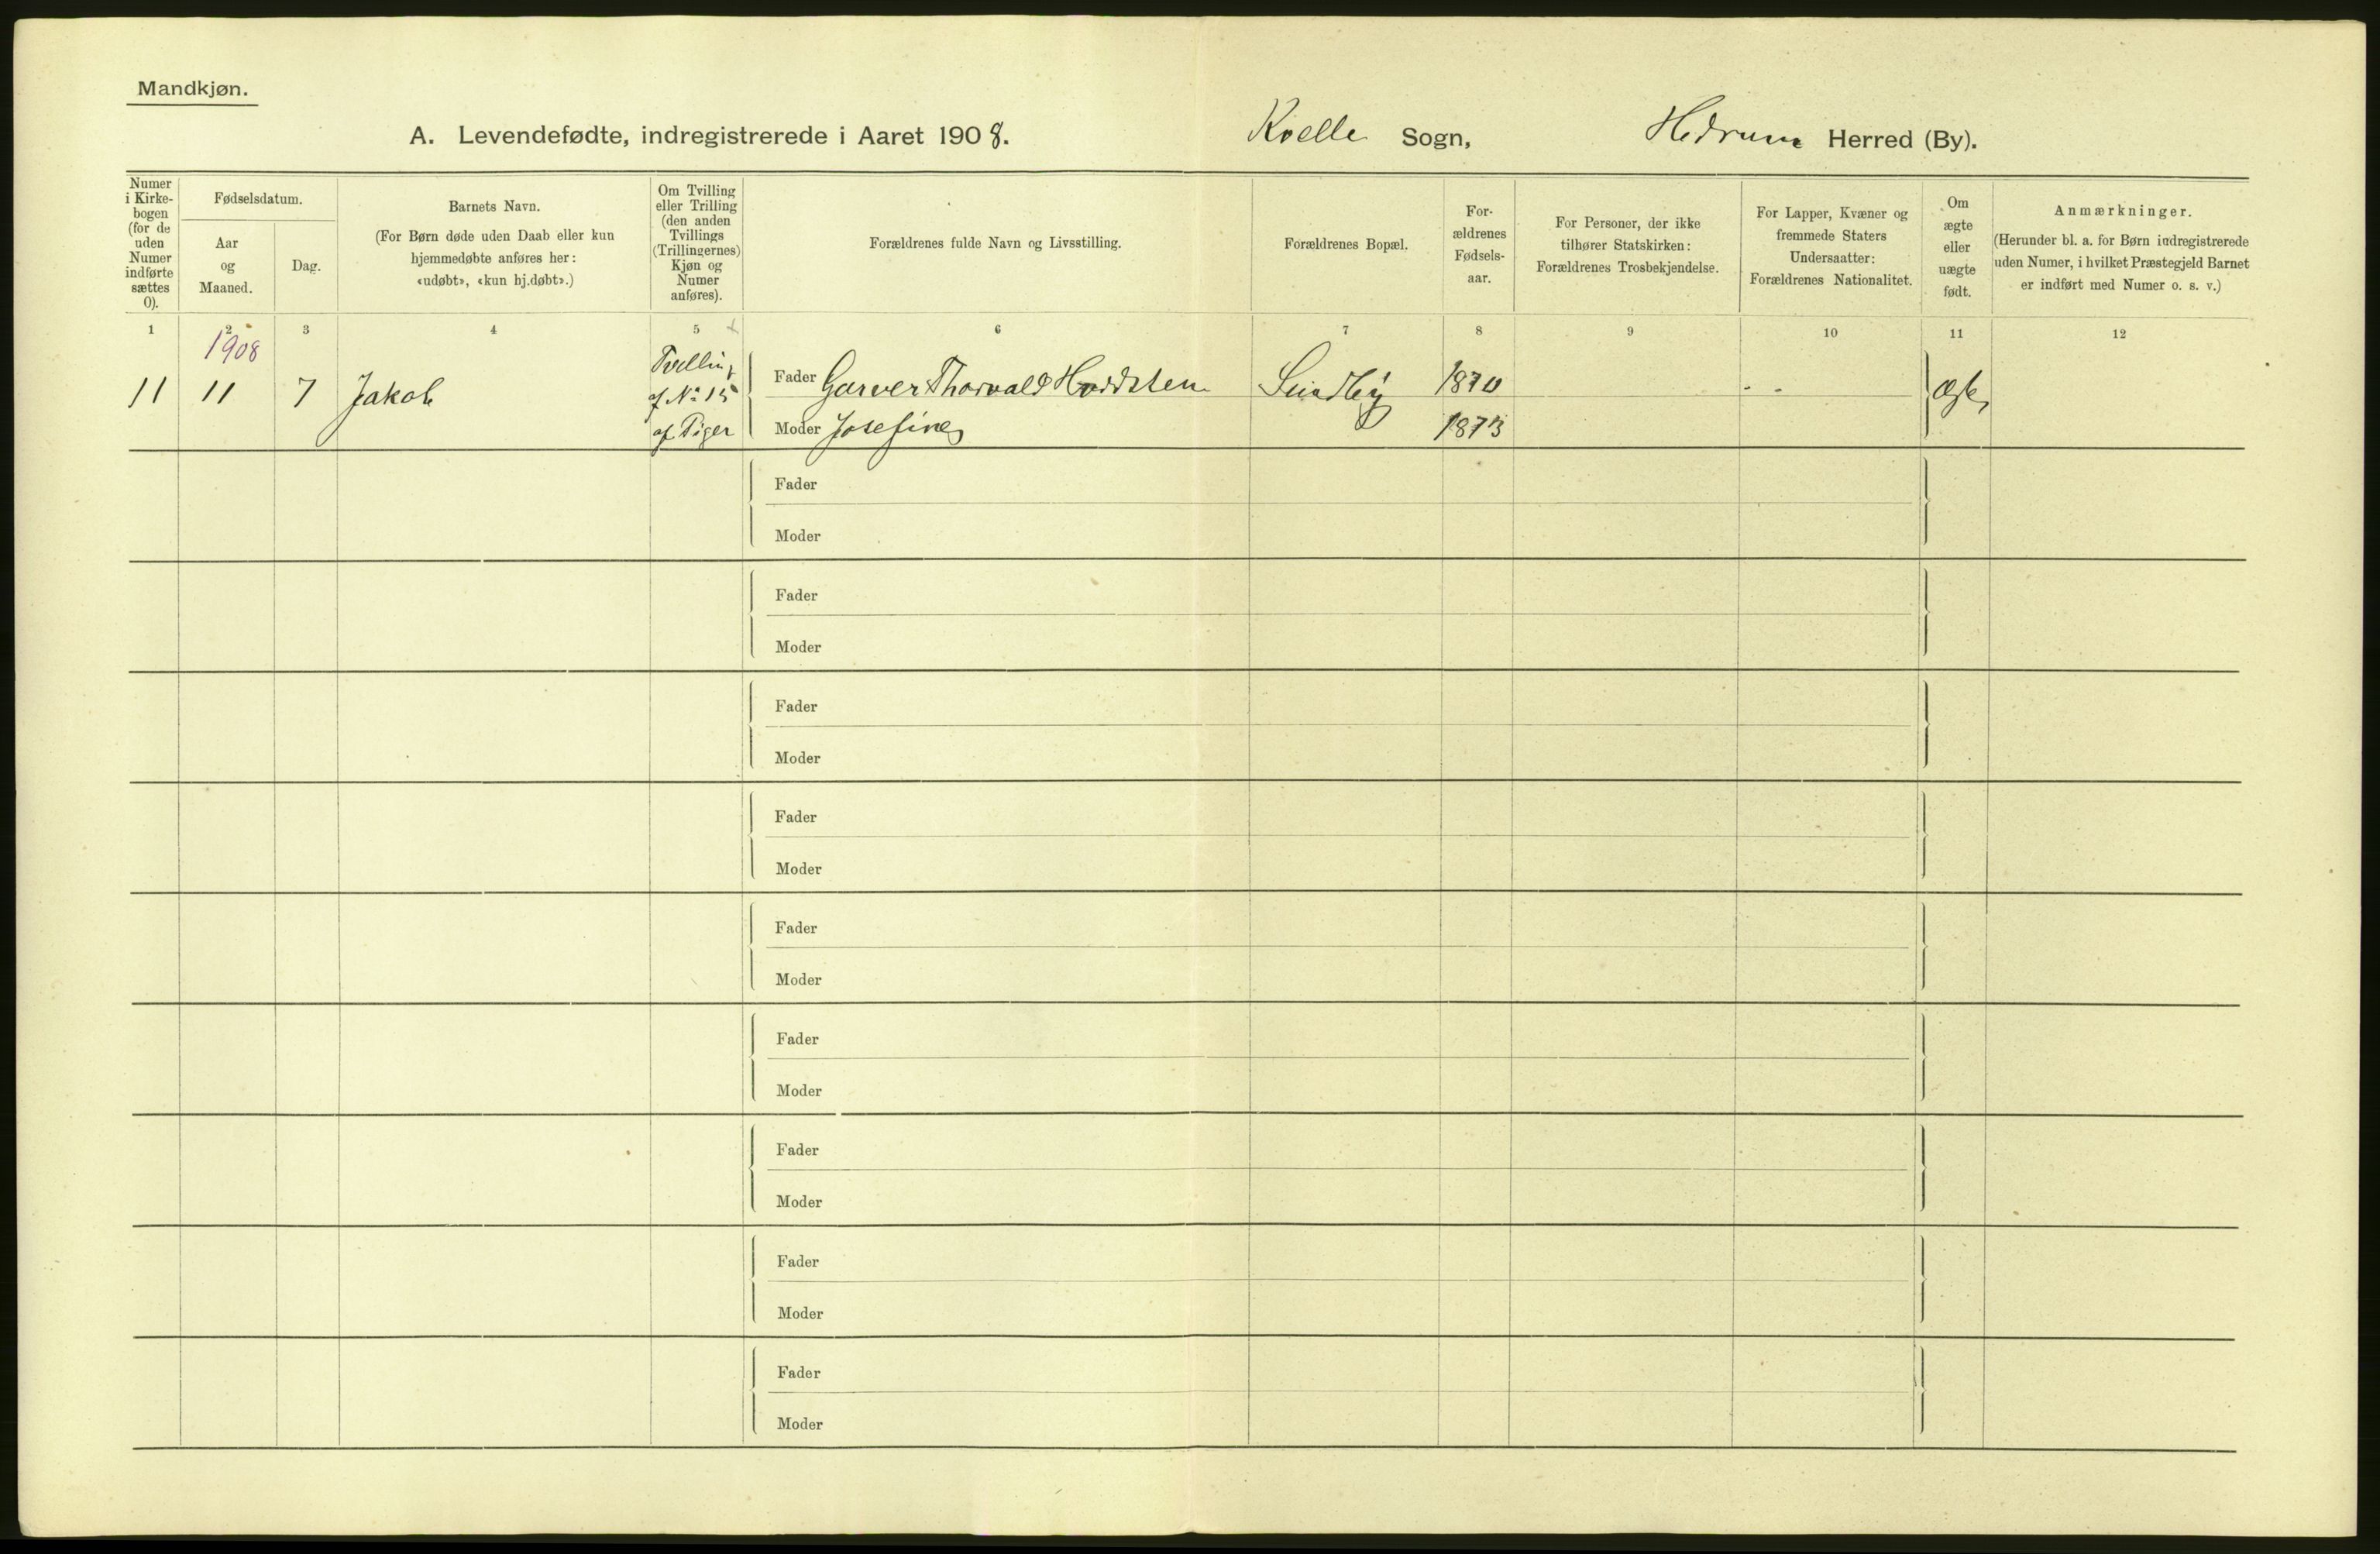 Mandkjøn.
A. Levendefødte, indregistrerede i Aaret 1908. Kvelle Sogn, Hedrum Herred (By).
Numer i Kirke-bogen (for de uden Numer indførte sættes 0).
Fødselsdatum.
Aar og Maaned.
Dag.
Barnets Navn.
(For Børn døde uden Daab eller kun
hjemmedøbte anføres her:
«udøbt», «kun hj.døbt».)
Om Tvilling
eller Trilling
(den anden
Tvillings
(Trillingernes)
Kjøn og
Numer
anføres).
Forældrenes fulde Navn og Livsstilling.
Forældrenes Bopæl.
For-
ældrenes
Fødsels-
aar.
For Personer, der ikke
tilhører Statskirken:
Forældrenes Trosbekjendelse.
For Lapper, Kvæner og
fremmede Staters
Undersaatter:
Forældrenes Nationalitet.
Om
ægte
eller
uægte
født.
Anmærkninger.
(Herunder bl. a. for Børn indregistrerede
uden Numer, i hvilket Præstegjeld Barnet
er indført med Numer o. s. v.)
1 2 3 4 5 6 7 8 9 10 11 12
1908
11 11 7 Jakob
Tvilling
af No 15
af Piger
Fader Garver Thorvald Sundby 1870
Moder Josefine 1873
Ægte
Fader
Moder
Fader
Moder
Fader
Moder
Fader
Moder
Fader
Moder
Fader
Moder
Fader
Moder
Fader
Moder
Fader
Moder